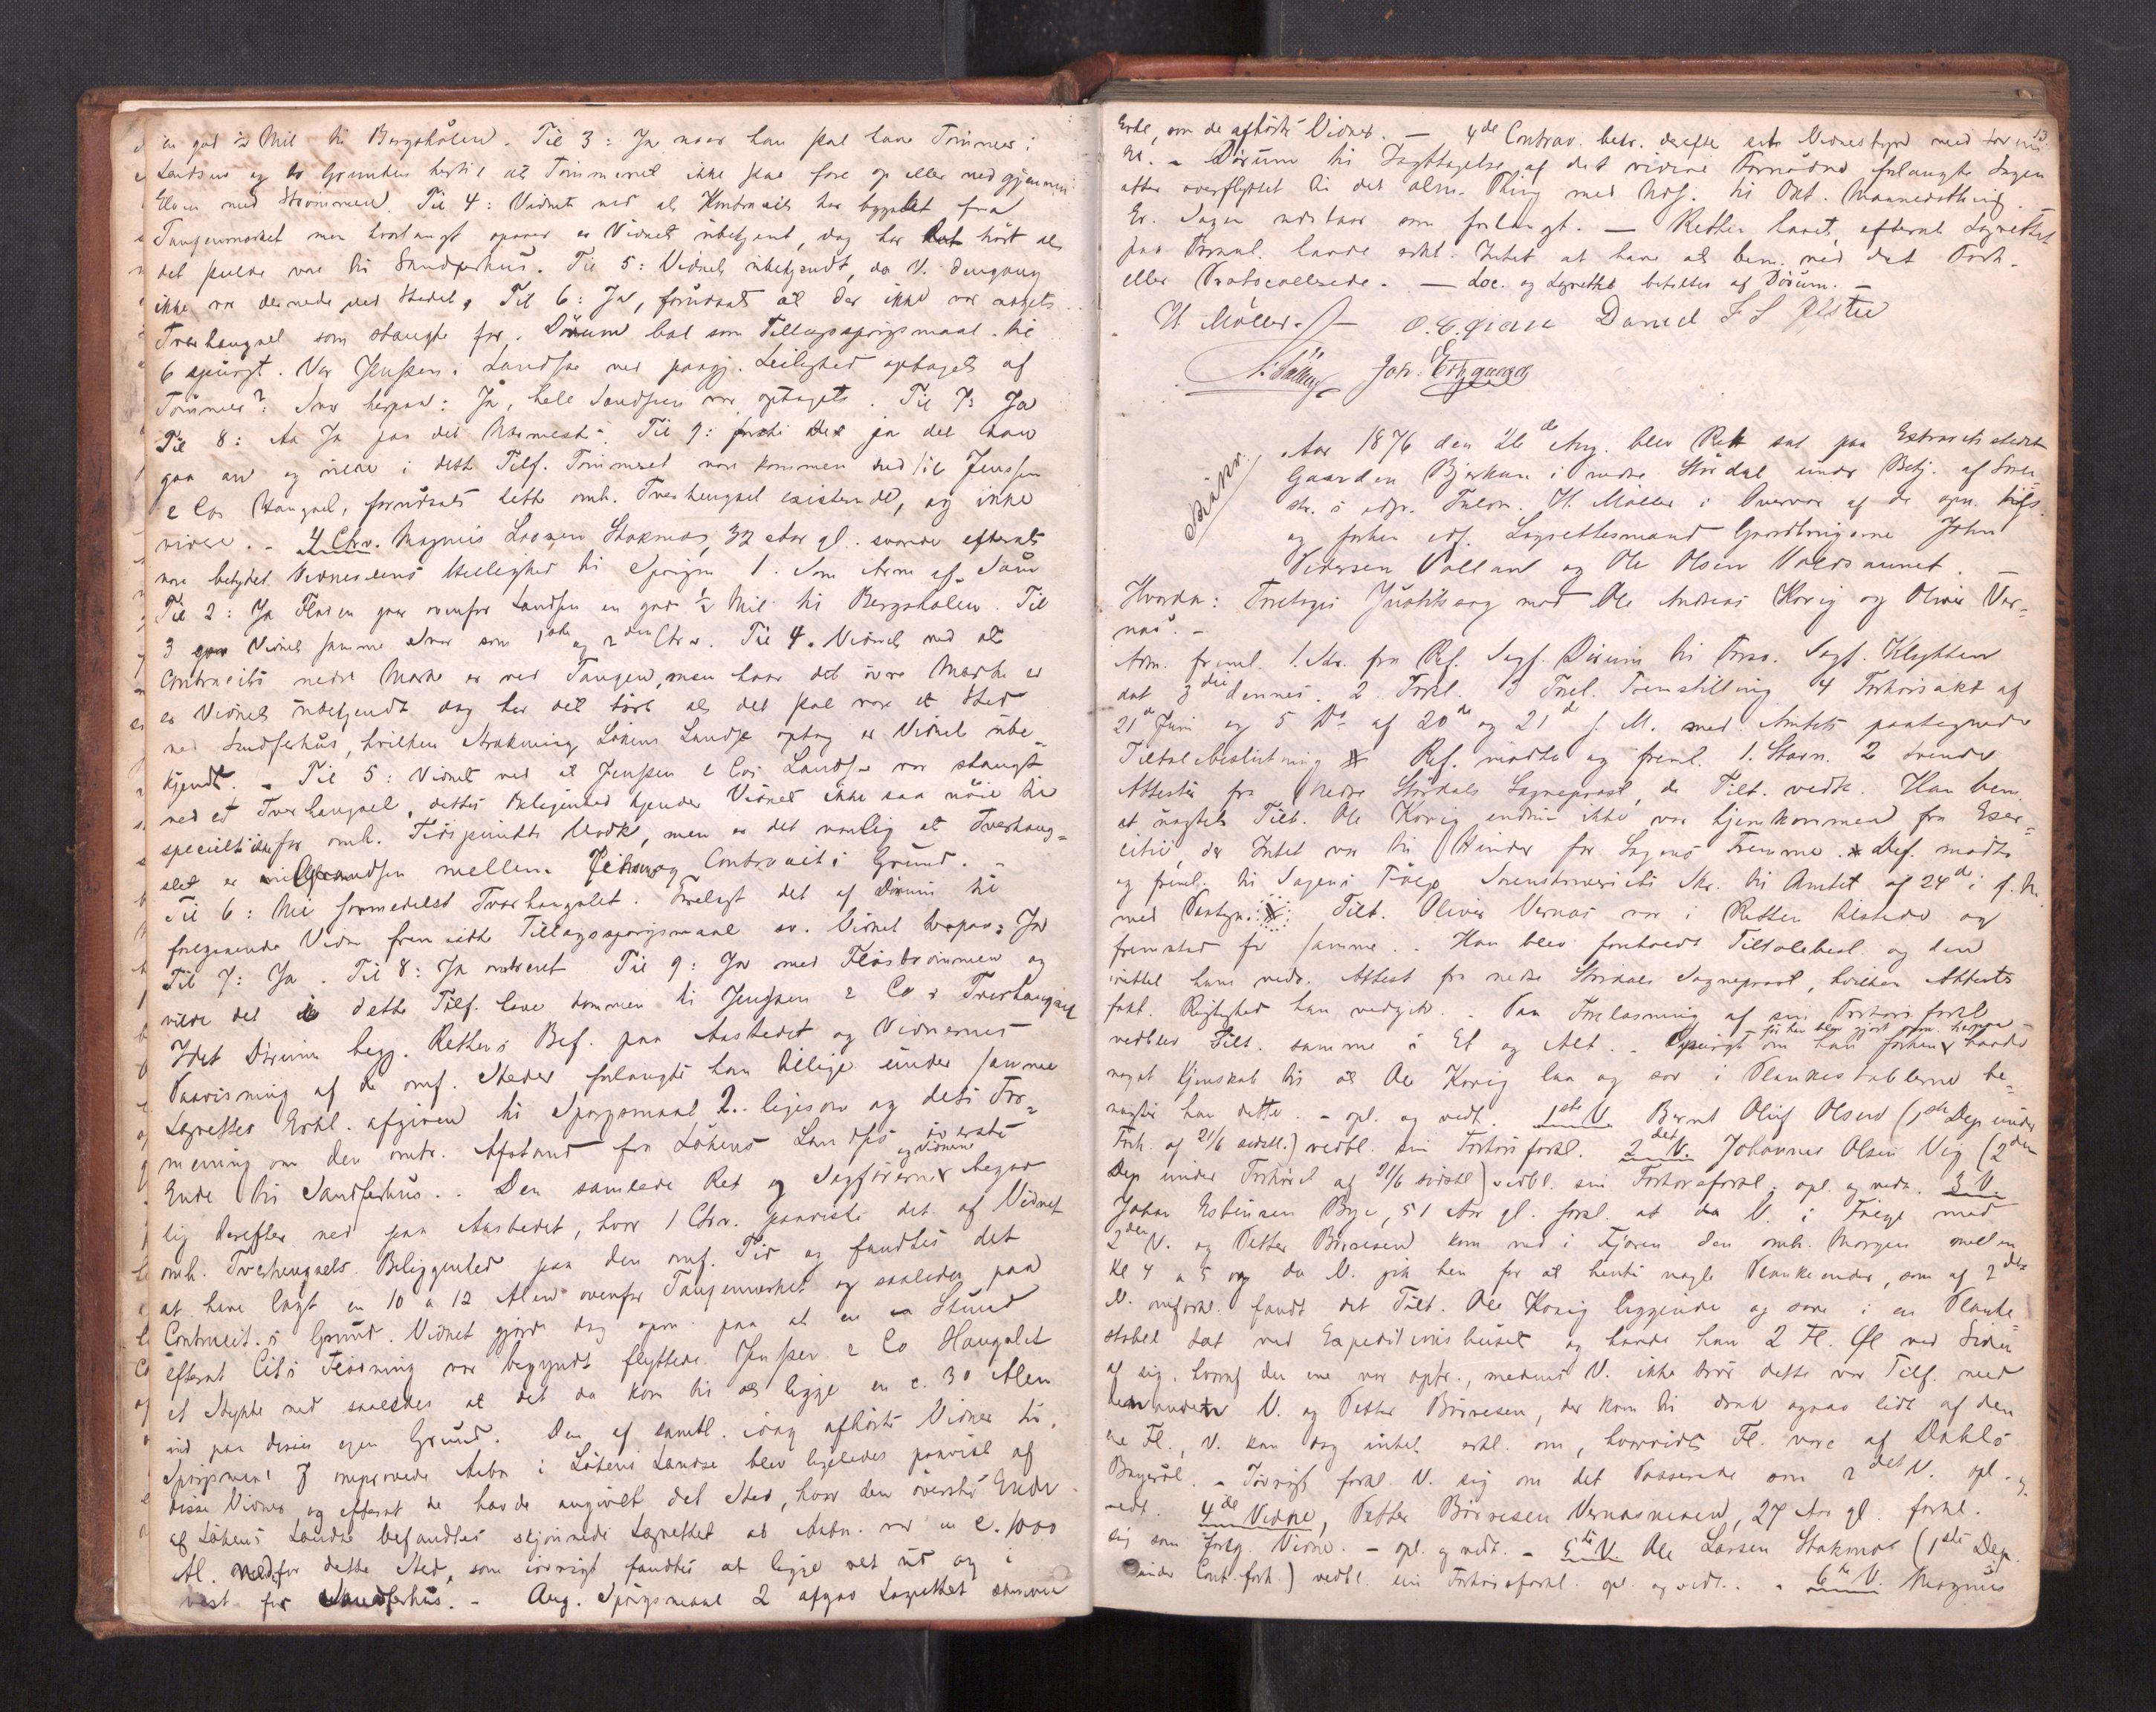 en god ½ Mil til Bergshølen. Til 3: Ja naar han skal have Tømmer i
Landsen og Grunden hertil at Tømmeret ikke skal fare op eller ned gjennem
Elven med Strømmen. Til 4: Vidnet ved at Kontracits har bygslet fra
Tangenmærket men hvorlangt opover er Vidnet ubekjent, dog har hørt at
det skulde være til Sandferhus. Til 5: Vidnet ubekjendt, da V. dengang
ikke var dernede ved Stedet. Til 6: Ja, forudsat at der ikke var noget
Tverhængsel som stængte for. Dørum bad som Tillægsspørgsmaal til
6 spurgt. Var Jenssens Landse ved paagj. Leilighed optaget af
Tømmer? Svar herpaa: Ja, hele Landsen var optaget. Til 7: Ja
Til 8: Ja paa det Nærmeste. Til 9: ja det kan
gaa an og vilde i dette Tilf. Tømmeret være kommen ned til Jenssen
& Cos Hængsel, forudsat dette omh. Tverhængsel existerede, og ikke
videre. - 4 Ctrv. Magnus Larsen Stokmo, 32 Aar gl. svarede efterat
være betydet Vidneedens Hellighed til Spørgsm 1. Som Arne
Til 2: Ja Floden gaar ovenfor Landsen en god ½ Mil til Bergshølen. Til
3 gav Vidnet samme Svar som 1ste og 2den Ctrv. Til 4. Vidnet ved at
Contracits nedre Mærke er ved Tangen, men hvor det øvre Mærke er
er Vidnet ubekjendt dog har det hørt at det skal være et Sted
ved Sandferhus, hvilken Strækning Løkens Landse optog er Vidnet ube-
kjendt. - Til 5: Vidnet ved at Jenssen & Cos Landse var stængt
ved et Tverhængsel, dettes Beliggenhed kjender Vidnet ikke saa nøie til
specielt for omh. Tidspunkts Vedk, men er det vanlig at Tverhæng-
slet er mellem og Contracits Grund. -
Til 6: Nei formedelst Tverhængslet. Forelagt det af Dørum til
foregaaende Vidne fremsatte Tillægsspørgsmaal sv. Vidnet herpaa: Ja
Til 7: Ja. Til 8: Ja omtrent Til 9: Ja med Flodstrømmen og
vilde det i dette Tilf. være kommen til Jenssen & Co s Tverhængsel
Idet Dørum begj. Rettens Bef. paa Aastedet og Vidnernes
Paavisning af de omf. Steder forlangte han tillige under samme
Lagrettes Erkl. afgiven til Spørgsmaal 2. ligesom og dets For-
mening om den omtr. Afstand fra Løkens Landses øverste
Ende til Sandferhus. - Den samlede Ret og Sagførerne og Vidnerne begav
sig derefter ned paa Aastedet, hvor 1 Ctrv. paaviste det af Vidnet
omh. Tverhængsels Beliggenhed paa den omf. Tid og fandtes det
at have lagt en 10 a 12 Alen ovenfor Tangenmærket og saaledes paa
Contracit.s Grund. Vidnet gjorde dog opm. paa at en Stund
efterat Cit.s Flødning var begyndt flyttede Jenssen & Co Hængslet
et Stykke ned saaledes at det da kom til at ligge en c. 30 Alen
ind paa deres egen Grund. Den af samtl. idag afhørte Vidner til
Spørgsmaal 7 omprovede Aabn i Løkens Landse blev ligeledes paavist af
disse Vidner og efterat de havde angivet det Sted, hvor den øverste Ende
af Løkens Landse befandtes skjønnede Lagrettet at Aabn. var en c. 1000
Al. nedenfor dette Sted, som iøvrigt fandtes at ligge ret ud og i
vest for Sandferhus. - Ang. Spørgsmaal 2 afgav Lagrettet samme
13
Erkl, som de afhørte Vidner. - 4de Contrav. bekr. derefter sit Vidnesbyrd med
Ed. - Dørum til Iagttagelse af det videre Fornødne forlangte Sagen
atter overflyttet til det alm. Thing med Uds. til Okt. Maanedsthing. -
Er. Sagen udstaar som forlangt. - Retten hævet efterat Lagrettet
paa Formul. havde erkl. Intet at have at bem. ved det Forh.
eller Protocollerede. - Loc. og Lagrettet betaltes af Dørum. -
H. Møller. O. C. Daniel
Joh.
Aar 1876 den 26de Aug. blev Ret sat paa Extraretsstedet
Gaarden Bjerkan i nedre Stördal under Betj. af Soren-
skr. s edsv. Fuldm. H. Møller i Overvær af de opn.
og forhen eds. Lagrettesmænd Gaardbrugerne John
Pedersen Vollan og Ole Olsen Valdsaunet. -
Hvorda: Foretoges Justitssag mod Ole Andreas Korig og Oliver Ver-
næs. -
Adm. freml. 1. Skr. fra Ref. Sagf. Dørum til Prso. Sagf. Klykken
dat 3die dennes. 2. Forkl. 3 Fremstilling 4 Forhørsakt af
21de Juni og 5 Do af 20de og 21de f. M. med Amtets paategnede
Tiltalebeslutning Ref. mødte og freml. 1. Stævn. 2 tvende
Attester fra Nedre Stördals Sogneprest, de Tilt. vedk. Han bem.
at nægtet Tilt. Ole Korig endnu ikke var hjemkommen fra Exer-
citie, der Intet var til Hinder for Sagens Fremme. Def. mødte
og freml. til Sagens Følge Sorenskriveriets Skr. til Amtet af 24de i f. M.
med Paategn. Tilt. Oliver Vernæs var i Retten tilstede og
fremstod for samme. - Han blev foreholdt Tiltalebesl. og den
indkl. ham vedr. Attest fra nedre Stördals Sogneprest, hvilken Attests
fakt. Rigtighed han vedgik. - Paa Forelæsning af sin Forhørsforkl.
vedblev Tilt. samme i Et og Alt. - Spurgt om han forhen havde før han blev gjort opm. herpaa
noget Kjendskab til at Ole Korig laa og sov i Plankestablerne be-
nægter han dette. - opl. og vedt. 1ste V. Bernt Oluf Olsen (1ste Dep under
Forh. af 21/6 sidstl.) vedbl. sin Forhørsforkl. 2det V. Johannes Olsen Vig (2den
Dep under Forhøret af 21/6 sidstl) vedbl. sin Forhørsforkl. opl. og vedt. 3 V.
Johan Estensen Bye, 51 Aar gl. forkl. at da V. i Følge med
2den V. og Petter Børresen kom ned i Fjæren den omh. Morgen mellem
Kl 4 a 5 og da V. gik hen for at hente nogle Plankeender, som af 2det
V. omforkl. fandt det Tilt. Ole Korig liggende og sove i en Planke-
stabel tæt ved Expeditionshuset og havde han 2 Fl. Øl ved Siden
af sig, hvoraf den ene var optr., medens V. ikke tror dette var Tilf. med
den anden V. og Petter Børresen, der kom til drak ogsaa lidt af den
ene Fl., V. kan dog intet erkl. om, hvorvidt Fl. vare af Dahls
Bayerøl. - Iøvrigt forkl. V. sig om det Passerede som 2det V. opl. og
vedt. 4de Vidne, Petter Børresen Vernæsmoen, 27 Aar gl. forkl.
sig som forrg. Vidne. - opl. og vedt. - 5te V. Ole Larsen Stokmo (1ste Dep.
under Cont. forh.) vedbl. sin Forhørsforkl. opl. og vedt. - 6te V. Magnus